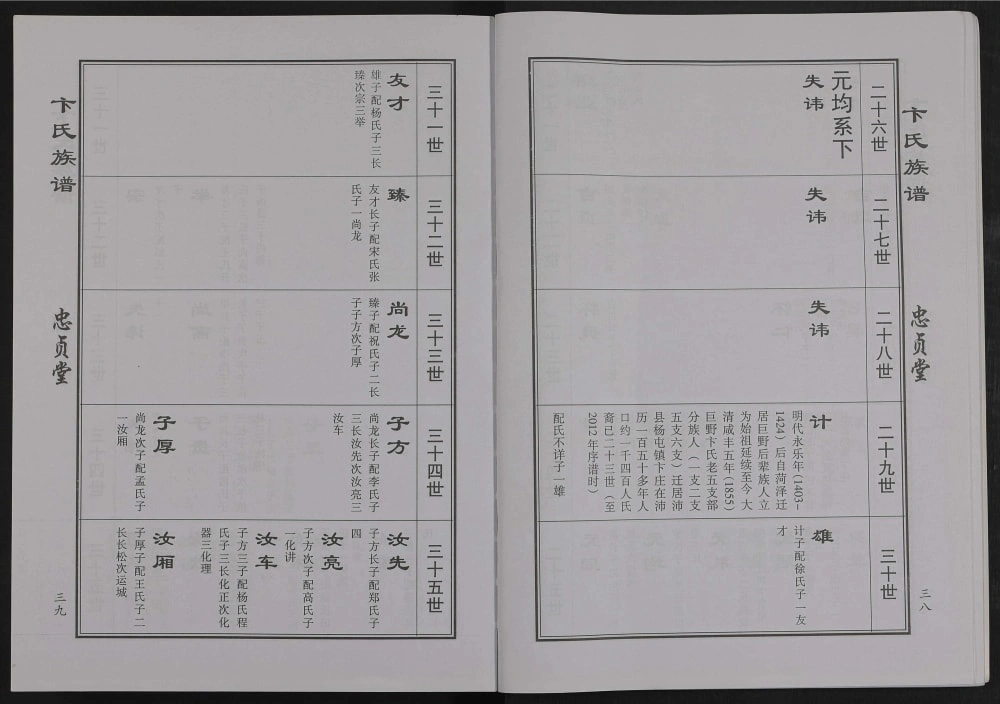 卞氏族谱
忠贞堂
三八
二十六世
元均系下
失讳
二十七世
失讳
二十八世
失讳
二十九世
计
明代永乐年(1403-
1424)后自菏泽迁
居巨野后辈族人立
为始祖延续至今 大
清咸丰五年(1855)
巨野卞氏老五支部
分族人(一支二支
五支六支)迁居沛
县杨屯镇卞庄在沛
历一百五十多年人
口约一千四百人氏
裔已二十三世(至
2012年序谱时)
配氏不详子一雄
三十世
雄
计子配徐氏子一友
才
卞氏族谱
忠贞堂
三九
三十一世
友才
雄子配杨氏子三长
臻次宗三举
三十二世
臻
友才长子配宋氏张
氏子一尚龙
三十三世
尚龙
臻子配祝氏子二长
子子方次子厚
三十四世
子方
尚龙长子配李氏子
三长汝先次汝亮三
汝车
子厚
尚龙次子配孟氏子
一汝厢
三十五世
汝先
子方长子配郑氏子
四
汝亮
子方次子配高氏子
一化讲
汝车
子方三子配杨氏程
氏子三长化正次化
器三化理
汝厢
子厚子配王氏子二
长长松次运城